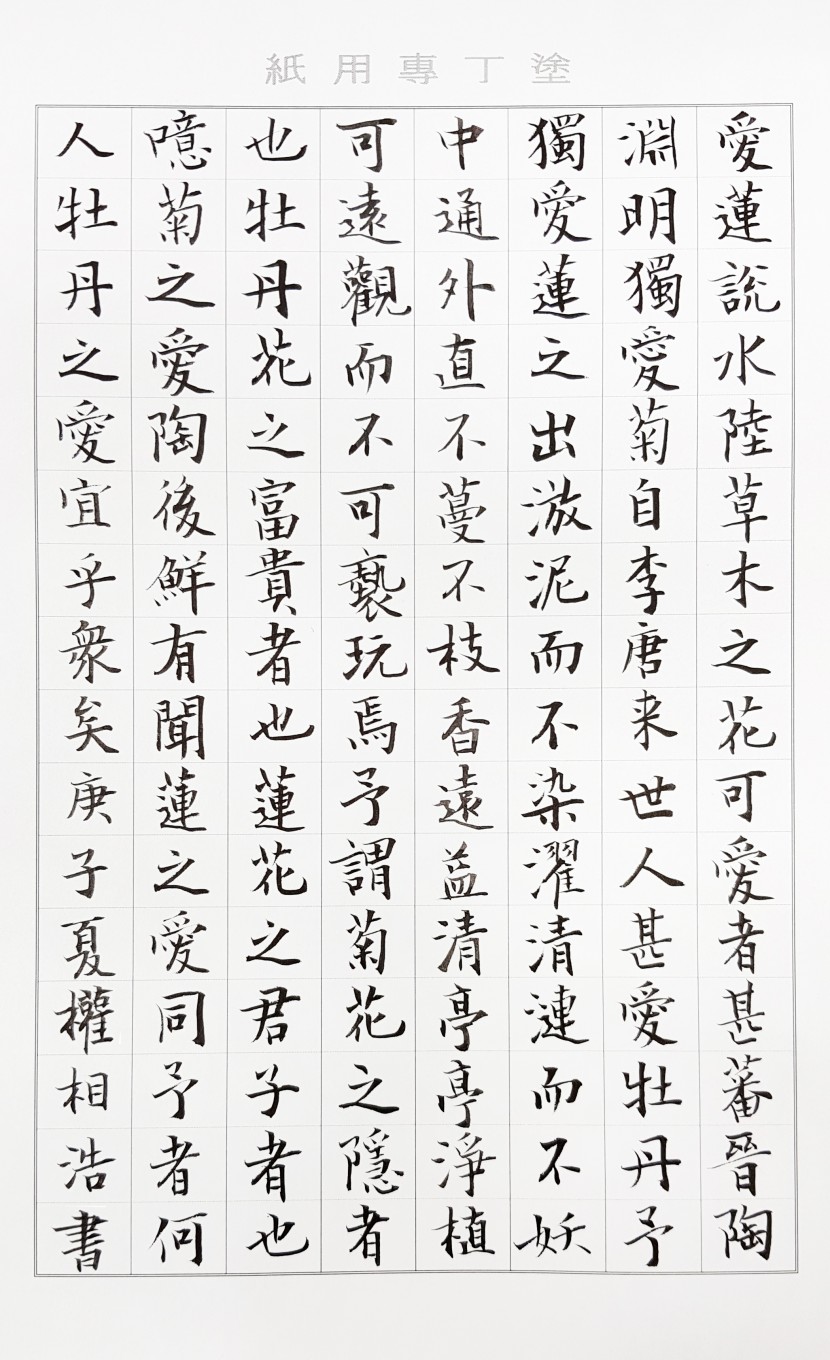 塗丁專用紙
愛蓮說水陸草木之花可愛者甚蕃晉陶
淵明獨愛菊自李唐来世人甚愛牡丹予
獨愛蓮之出淤泥而不染濯清漣而不妖
中通外直不蔓不枝香遠益清亭亭淨植
可遠觀而不可褻玩焉予謂菊花之隱者
也牡丹花之富貴者也蓮花之君子者也
噫菊之愛陶後鮮有聞蓮之愛同予者何
人牡丹之愛宜乎衆矣庚子夏權相浩書